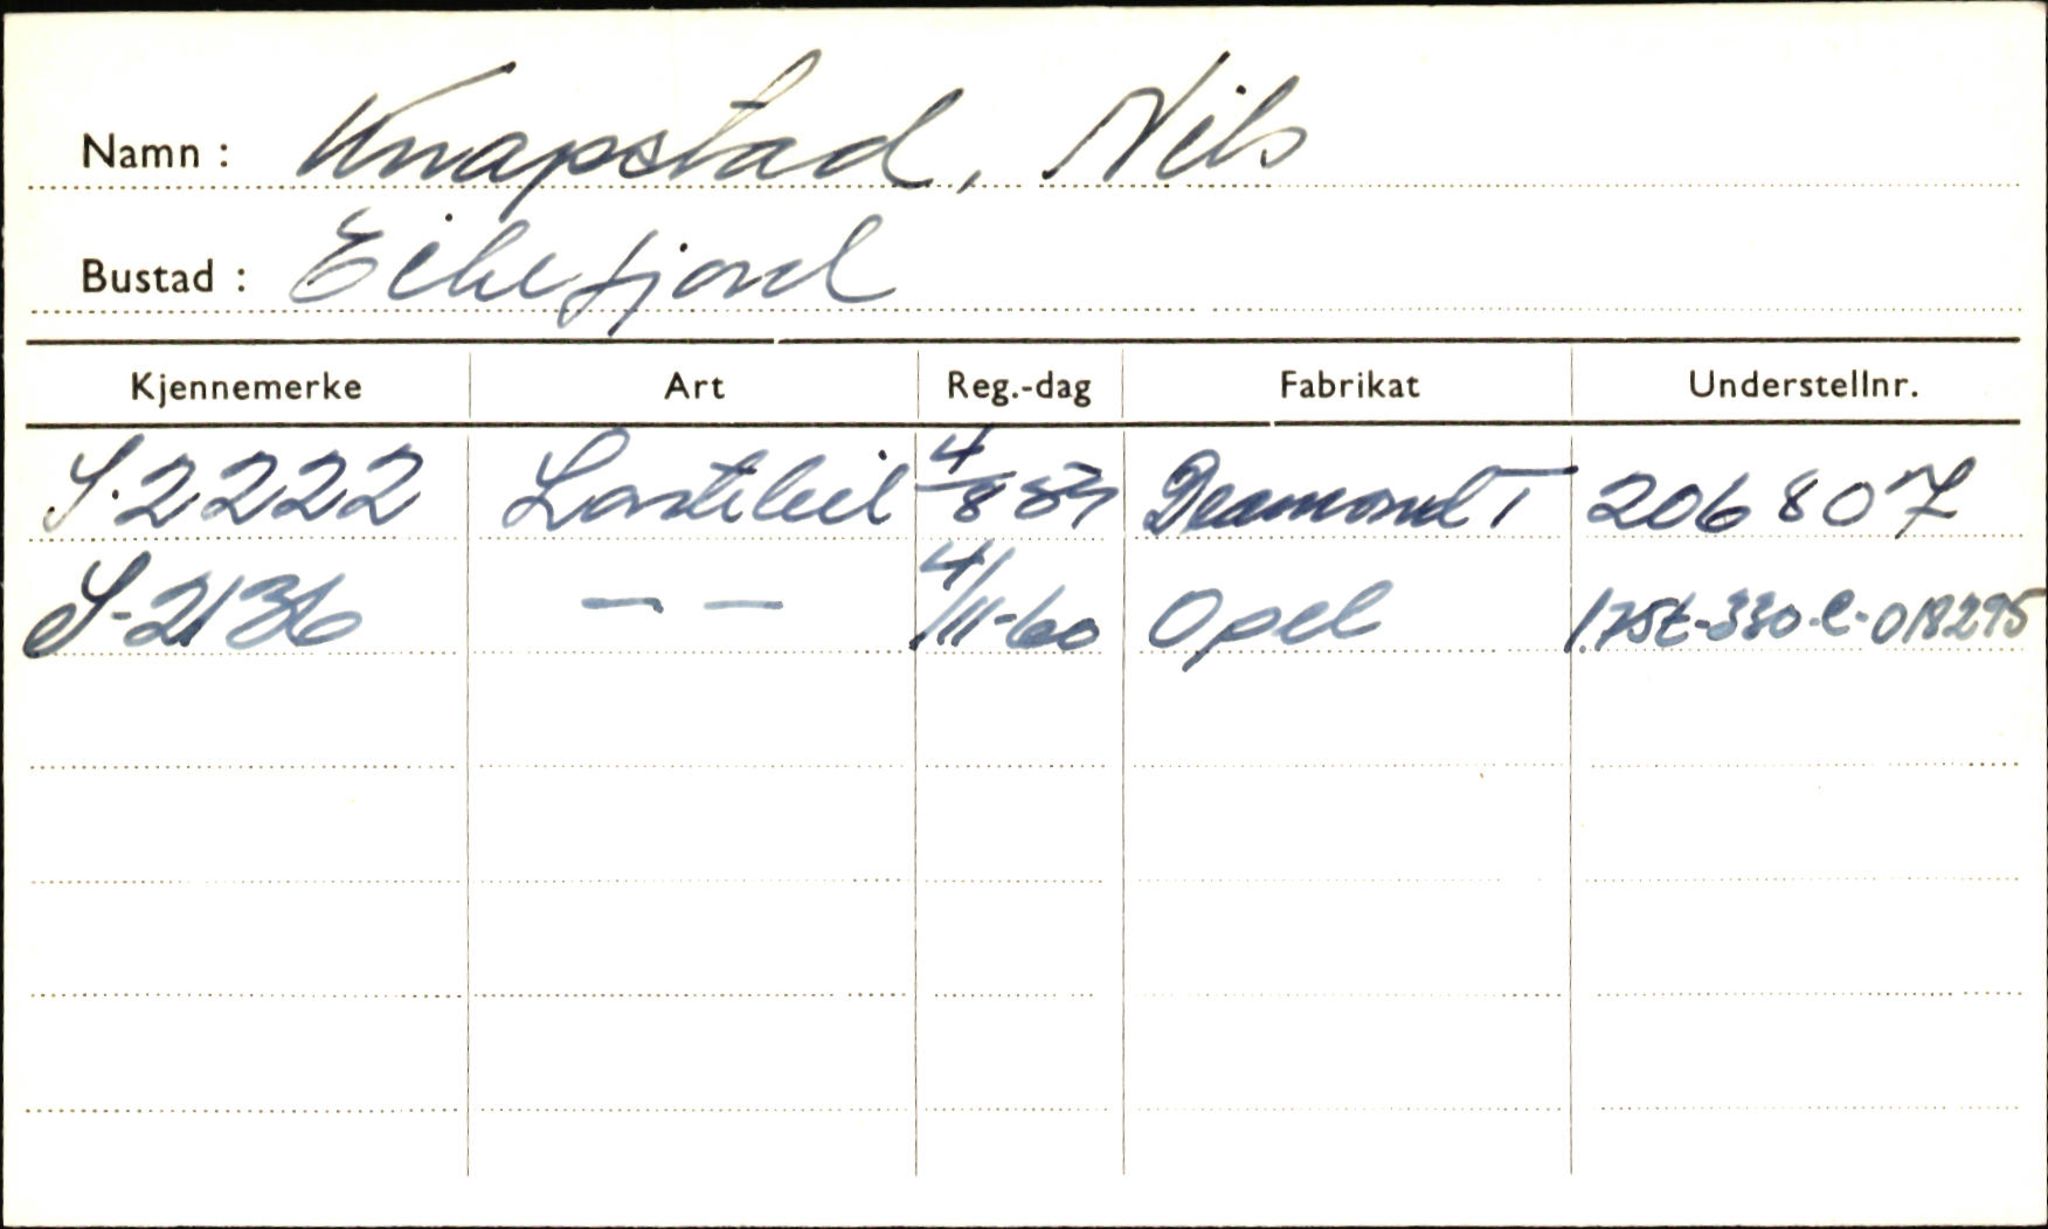 Namn : Knapstad, Nils
Bustad : Eikefjord
Kjennemerke Art Reg.-dag Fabrikat Understellnr.
S.2222 Lastebil 4/8 Deamond T 206807
S-2136 — — 4/11-60 Opel 1.75t-330-L-018295